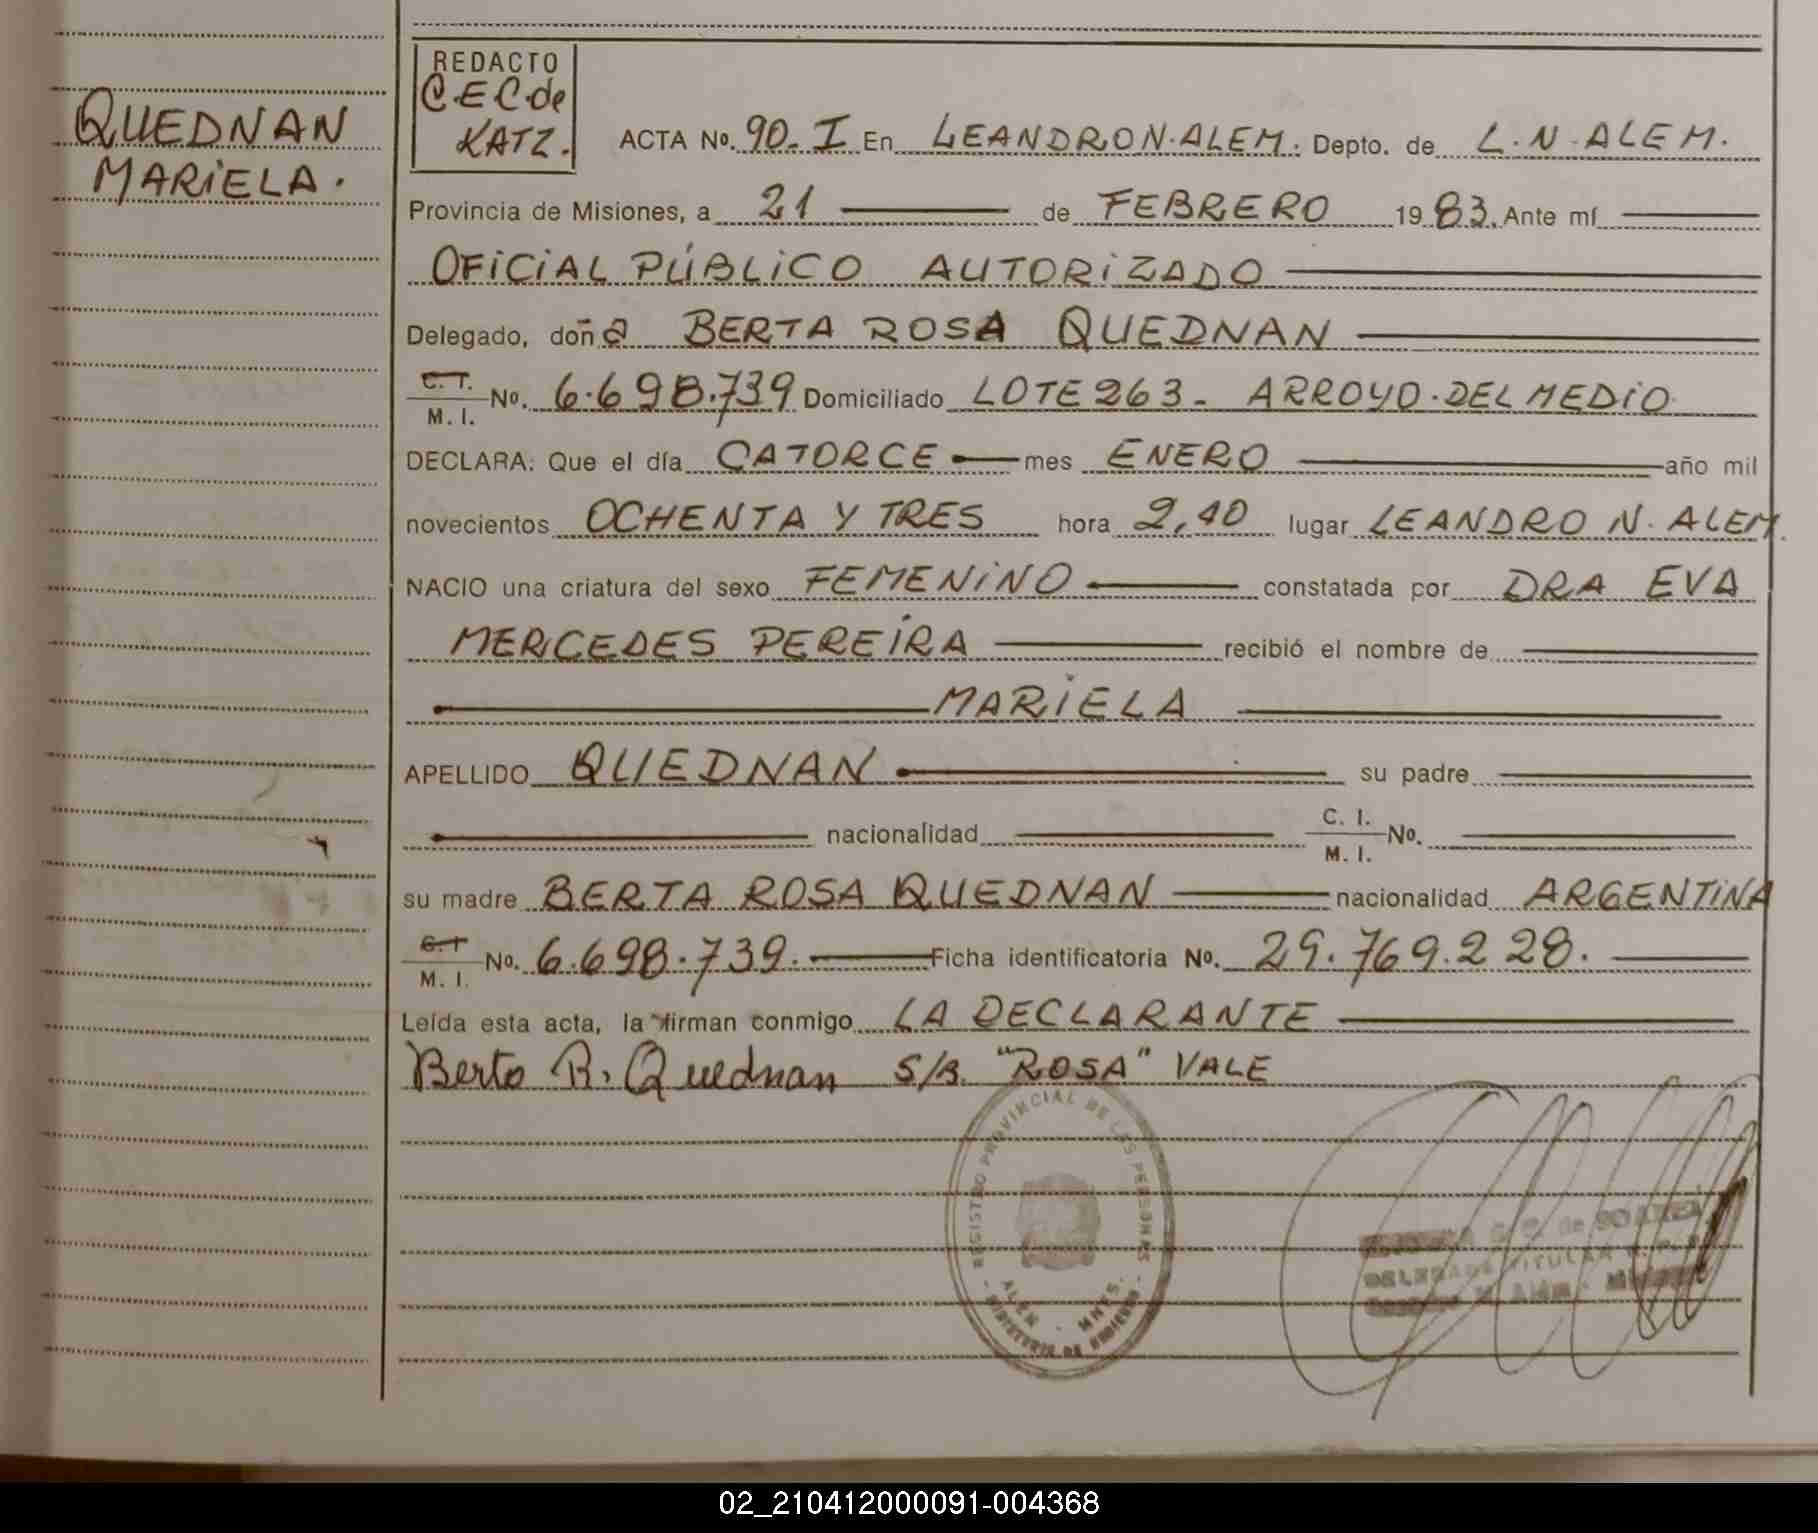 QUEDNAN
MARiELA.
REDACTO
C.E C. de
KATZ.
ACTA No. 90-I En LEANDRO N. ALEM. Depto. de L.N-ALEM.
Provincia de Misiones, a 21 de FEBRERO 1983. Ante mí
OFiCiAL PÚBLiCO AUTORiZADO
Delegado, doña BERTA ROSA QUEDNAN
C. I.
M. I. No. 6.698.739 Domiciliado LOTE 263- ARROYO.DEL MEDiO
DECLARA: Que el día CATORCE mes ENERO año mil
novecientos OCHENTA Y TRES hora 2,40 lugar LEANDRO N. ALEM.
NACIO una criatura del sexo FEMENiNO constatada por DRA EVA
MERCEDES PEREiRA recibió el nombre de
MARiELA
APELLIDO QUEDNAN su padre
nacionalidad C. I.
M. I. No.
su madre BERTA ROSA QUEDNAN nacionalidad ARGENTiNA
C. I
M. I. No. 6.698.739. Ficha identificatoria No. 29.769.228.
Leída esta acta, la firman conmigo LA DECLARANTE
Berta R. Quednan S/B. "ROSA" VALE
REGISTRO PROVINCIAL DE LAS PERSONAS
ALEM - MNES.
MINISTERIO DE GOBIERNO
C. de SOAREZ
DELEGADO TITULAR R. P. P.
N. Alem - Misiones
02_210412000091-004368